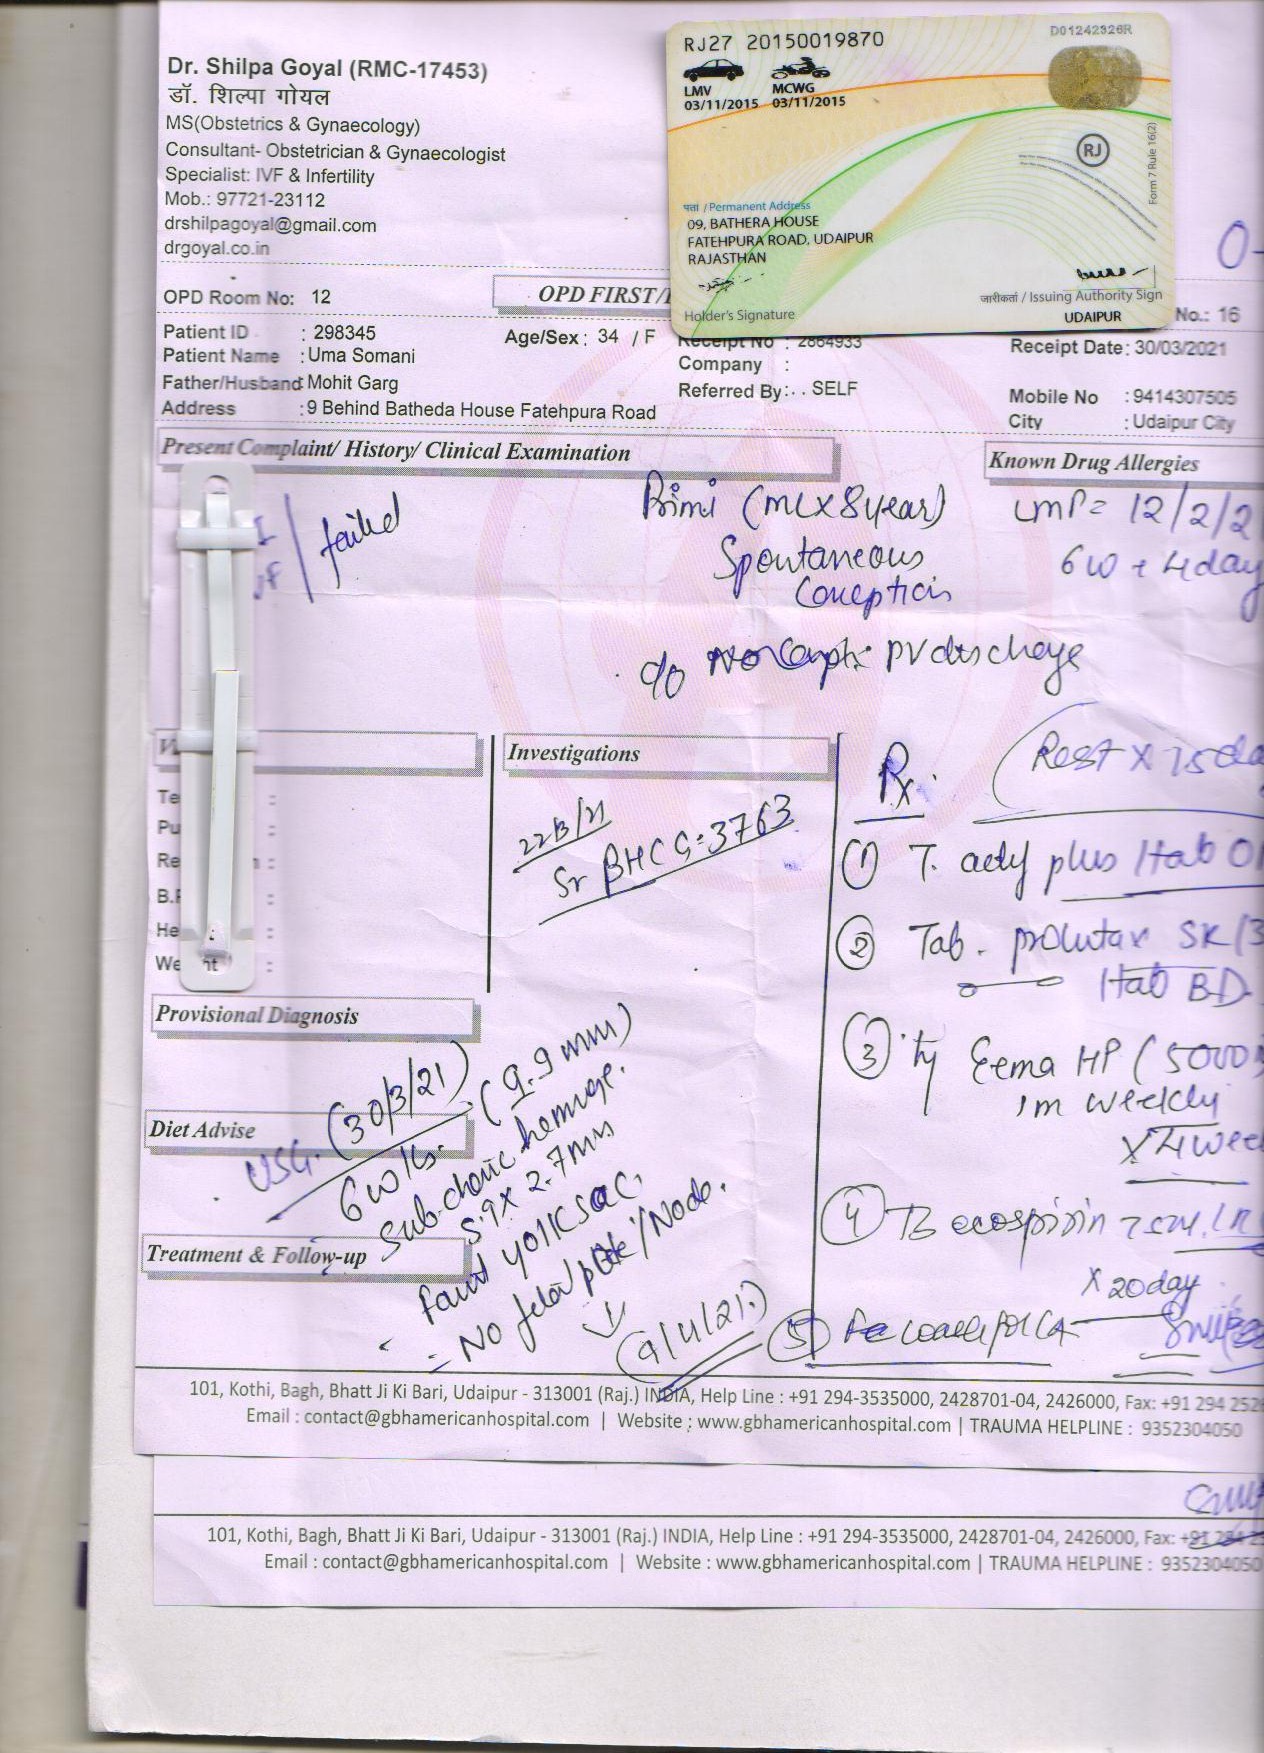 Dr. Shilpa Goyal (RMC-17453)
डॉ. शिल्पा गोयल
MS(Obstetrics & Gynaecology)
Consultant- Obstetrician & Gynaecologist
Specialist: IVF & Infertility
Mob.: 97721-23112
drshilpagoyal@gmail.com
drgoyal.co.in
RJ27 20150019870
D01242326R
LMV MCWG
03/11/2015 03/11/2015
RJ
Form 7 Rule 16(2)
पता / Permanent Address
09, BATHERA HOUSE
FATEHPURA ROAD, UDAIPUR
RAJASTHAN
Holder's Signature
जारीकर्ता / Issuing Authority Sign
UDAIPUR
OPD Room No: 12
OPD FIRST/
No.: 16
Patient ID : 298345
Age/Sex : 34 / F
Receipt No : 2864933
Receipt Date: 30/03/2021
Patient Name : Uma Somani
Company :
Father/Husband : Mohit Garg
Referred By: . . SELF
Mobile No : 9414307505
Address : 9 Behind Batheda House Fatehpura Road
City : Udaipur City
Present Complaint/ History/ Clinical Examination
Known Drug Allergies
failed
Primi (ML x 8 year)
LMP = 12/2/2
Spontaneous
6w + 4 day
Conception
c/o No PV discharge
Investigations
Rx
Rest x 15 da
22/3/21
Sr BHCG: 3763
(1) T. plus 1tab
(2) Tab. SR/3
1tab BD
(3) Eema HP (5000
im weekly
x 4 wee
(4) TB ecospirin 75
x 20 day
(5)
Provisional Diagnosis
Diet Advise
Treatment & Follow-up
USG. (30/3/21)
6 wks. (9.9 mm)
5.9 x 2.7mm
faint yolk sac.
- No fetal pole / Node.
(9/4/21)
101, Kothi, Bagh, Bhatt Ji Ki Bari, Udaipur - 313001 (Raj.) INDIA, Help Line : +91 294-3535000, 2428701-04, 2426000, Fax: +91 294 252
Email : contact@gbhamericanhospital.com | Website : www.gbhamericanhospital.com | TRAUMA HELPLINE : 9352304050
101, Kothi, Bagh, Bhatt Ji Ki Bari, Udaipur - 313001 (Raj.) INDIA, Help Line : +91 294-3535000, 2428701-04, 2426000, Fax: +91 294
Email : contact@gbhamericanhospital.com | Website : www.gbhamericanhospital.com | TRAUMA HELPLINE : 9352304050